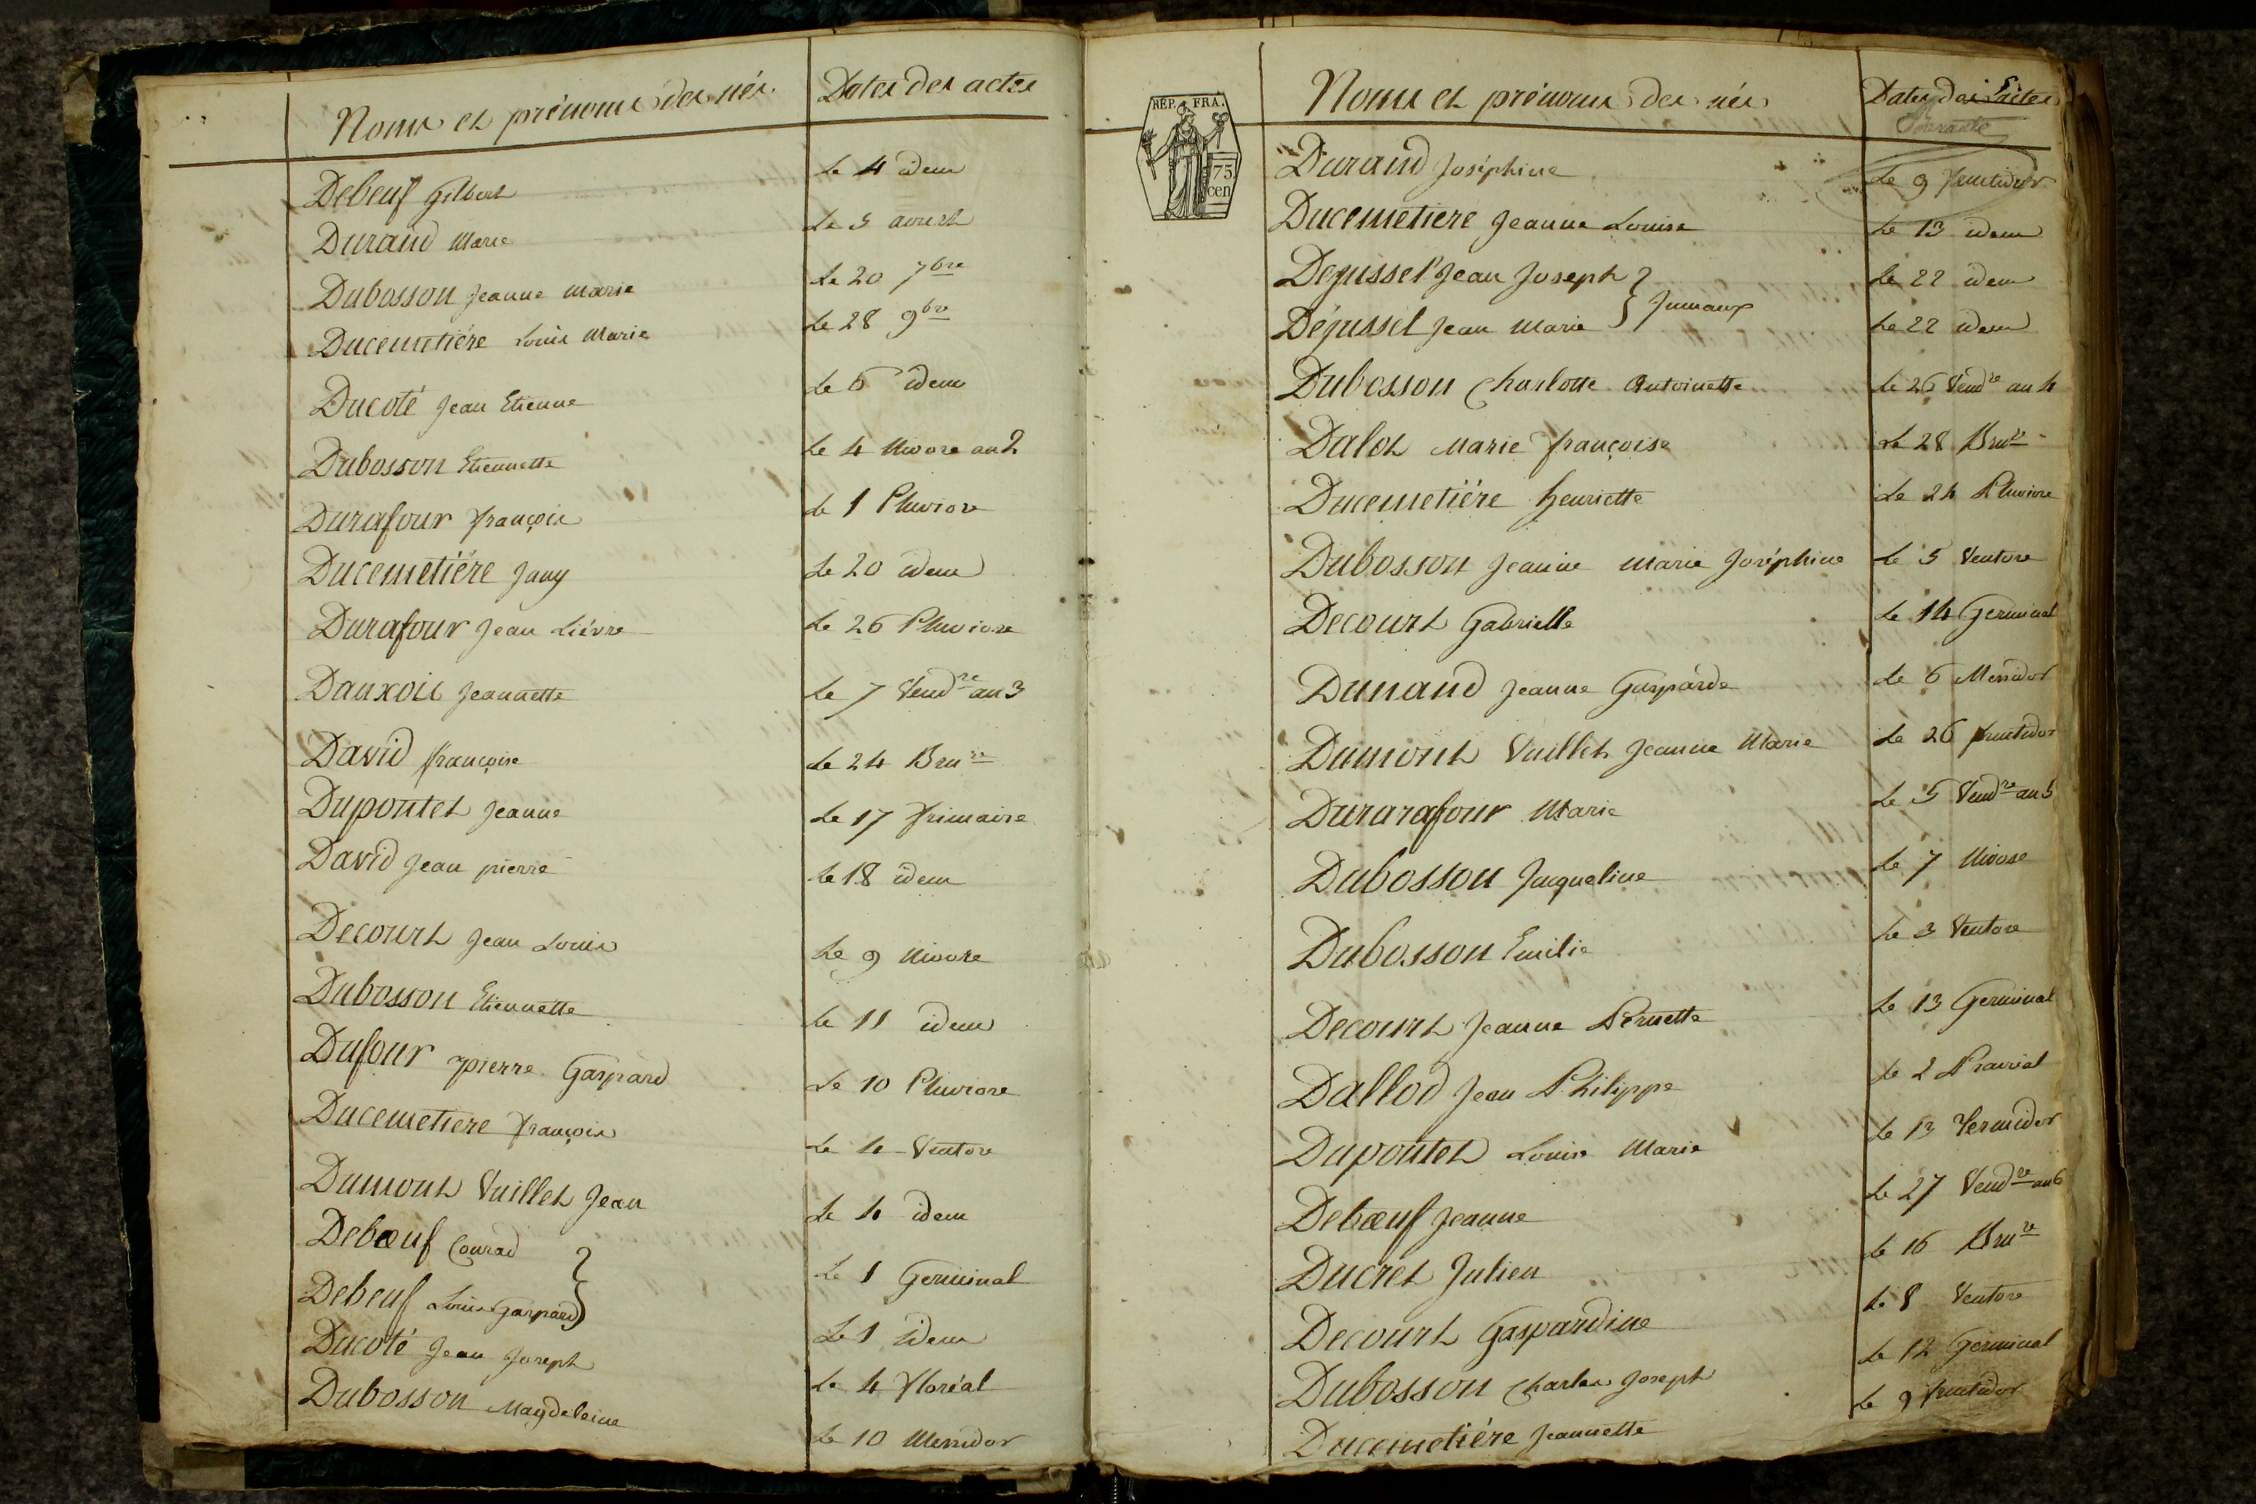 Noms et prénoms des nés. Dates des actes
Debeuf Gilbert Le 4 idem
Durand Marie Le 5 aoust
Dubosson Jeanne Marie Le 20 7bre
Ducemetiére Louis Marie Le 28 9bre
Ducoté Jean Etienne Le 6 idem
Dubosson Etiennette Le 4 Nivose an 2
Durafour françois Le 1 Pluviose
Ducemetiére Jany Le 20 idem
Durafour Jean Liévre Le 26 Pluviose
Dauxois Jeannette Le 7 Vendre an 3
David françoise Le 24 Brure
Dupontet Jeanne Le 17 frimaire
David Jean pierre Le 18 idem
Decourt Jean Louis Le 9 Nivose
Dubosson Etiennette Le 11 idem
Dufour pierre Gaspard Le 10 Pluviose
Ducemetiere françois Le 4 Ventose
Dumont Vuillet Jean Le 4 idem
Debœuf Conrad Le 1 Germinal
Debeuf Louis Gaspard Le 1 idem
Ducoté Jean Joseph Le 4 floréal
Dubosson Magdeleine Le 10 Messidor
REP. FRA.
75
cen
Noms et prénoms des nés Dates des actes
Durand Joséphine Le 9 fructidor
Ducemetiere Jeanne Louise Le 13 idem
Dejussel Jean Joseph Le 22 idem
Jumaux
Déjussel Jean Marie Le 22 idem
Dubosson Charlotte Antoinette Le 26 Vendre an 4
Dalot Marie françoise Le 28 Brure
Ducemetiére henriette Le 24 Pluviose
Dubosson Jeanne Marie Joséphine Le 5 Ventose
Decourt Gabrielle Le 14 Germinal
Dunand Jeanne Gasparde Le 6 Messidor
Dumont Vuillet Jeanne Marie Le 26 fructidor
Durarafour Marie Le 5 Vendre an 5
Dubosson Jacqueline Le 7 Nivose
Dubosson Emilie Le 3 Ventose
Decourt Jeanne Pernette Le 13 Germinal
Dallod Jean Philippe Le 2 Prairial
Dupontet Louise Marie Le 13 Termidor
Debœuf Jeanne Le 27 Vendre an 6
Ducret Julien Le 16 Brure
Decourt Gaspardine Le 8 Ventose
Dubosson Charles Joseph Le 12 Germinal
Ducemetiére Jeannette Le 9 fructidor